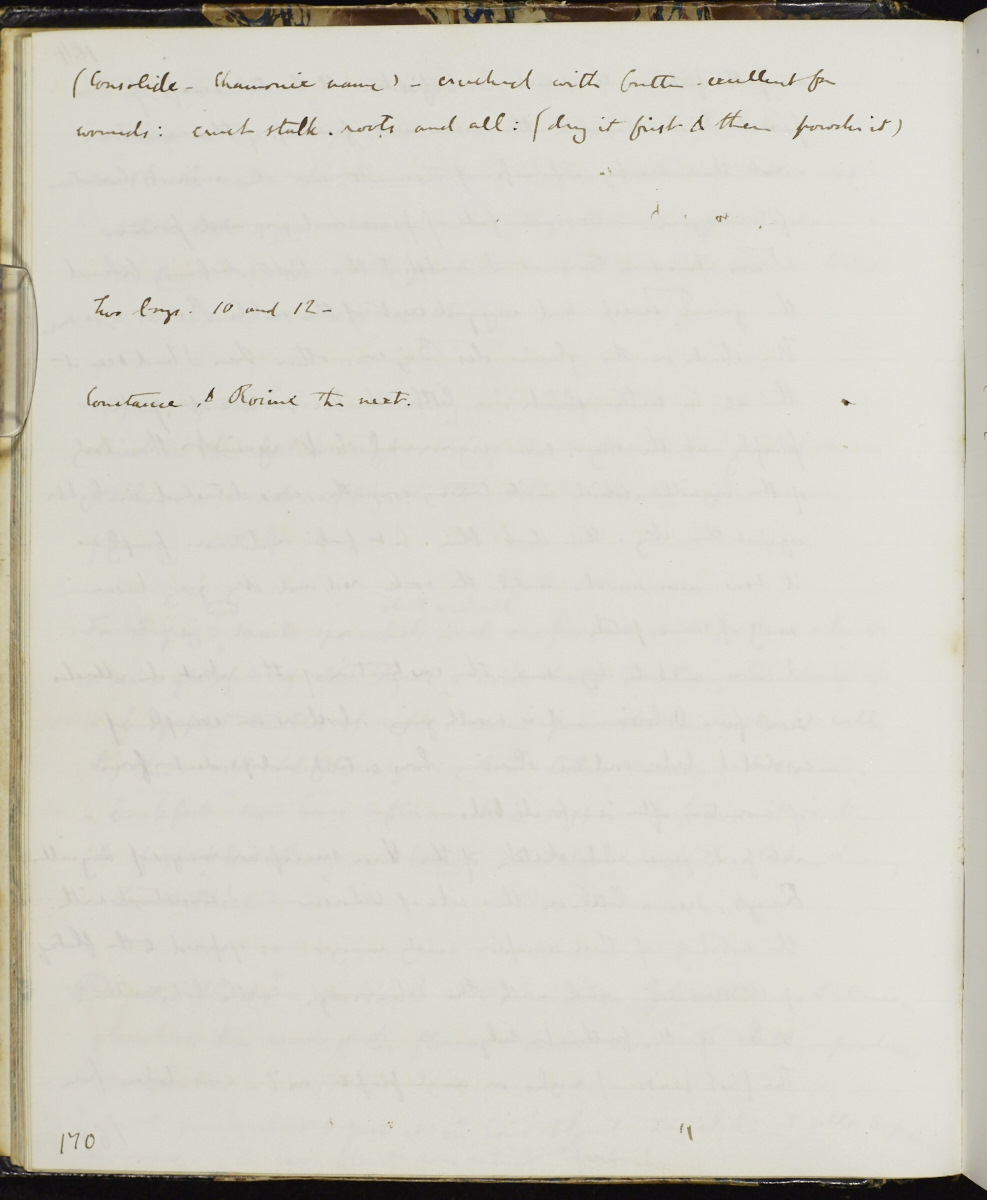 (Consolide - Chamonix name) - crushed with butter. excellent for
wounds: crush stalk. roots and all: (dry it first & then powder it)
Two boys. 10 and 12 -
Constance, & the next.
170